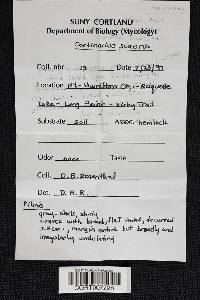 SUNY CORTLAND
Department of Biology (Mycology)
Cortinarius
Coll. nbr. 13 Date 7/23/97
Location NY - Hamilton Co. - Raquette
Lake - Long Point - Kirby Trail
Substrate soil Assoc. hemlock
Odor none Taste
Coll. D. B. Rosenthal
Det. D. B. R.
Pileus
gray-black, shiny
convex with broad, flat umbo,
margin entire but broadly and
irregularly undulating
CORT007228